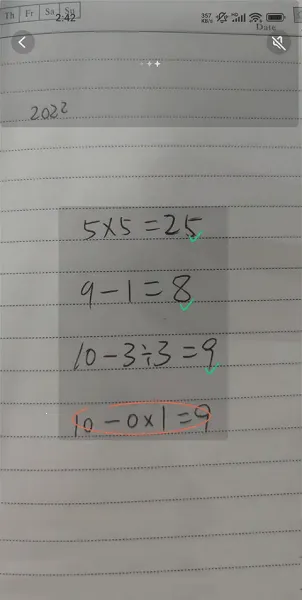 Th Fr Sa Su
2:42
Date
2022
5×5=25
9-1=8
10-3÷3=9
10-0×1=9